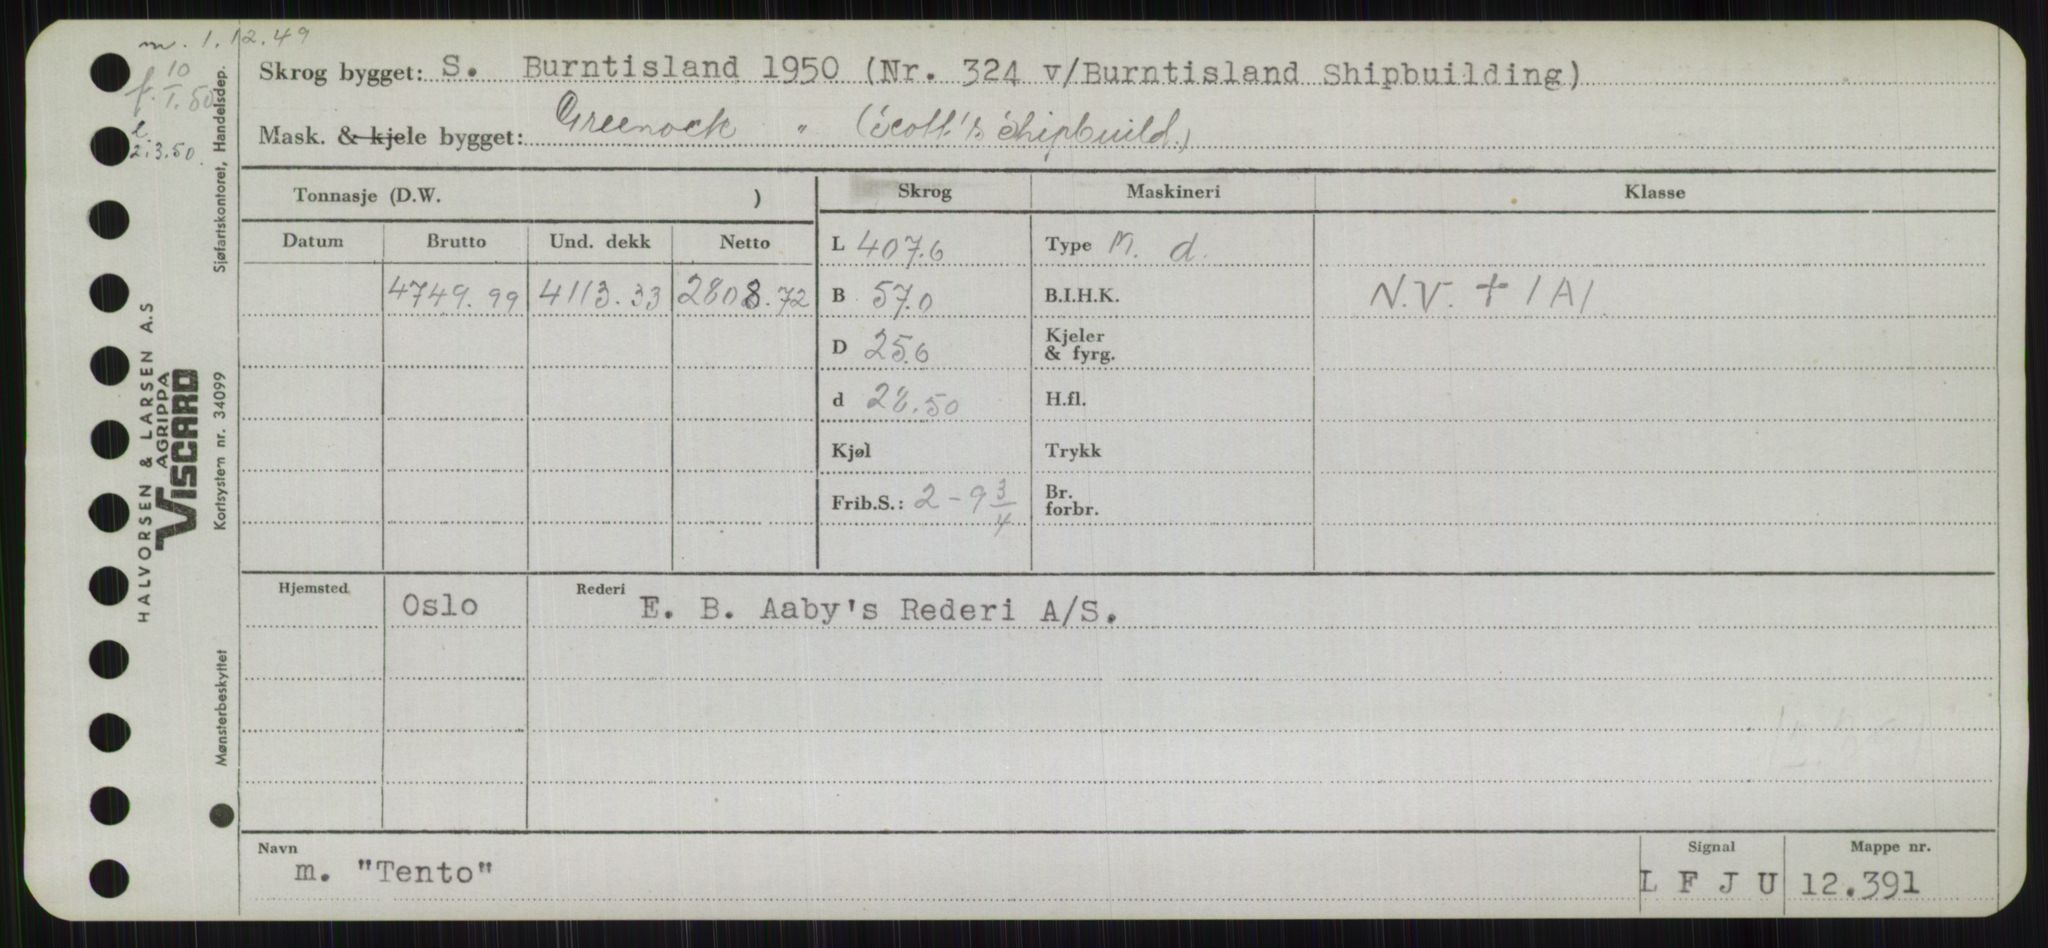 m. 1.12.49
10
f. I. 50
l.
2.3.50.
Skrog bygget: S. Burntisland 1950 (Nr. 324 v/Burntisland Shipbuilding)
Mask. & kjele bygget: Greenock " (Scott's Shipbuild.)
Tonnasje (D.W. )
Skrog Maskineri Klasse
Datum Brutto Und. dekk Netto
L 407.6 Type M. d.
4749.99 4113.33 2808.72 B 57.0 B.I.H.K. N.V. + 1A1
D 25.6 Kjeler
& fyrg.
d 28.50 H.fl.
Kjøl Trykk
Frib.S.: 2-9 3/4 Br.
forbr.
Hjemsted Oslo Rederi E. B. Aaby's Rederi A/S.
Navn Signal Mappe nr.
m. "Tento" L F J U 12.391
HALVORSEN & LARSEN A.S
AGRIPPA
VISCARD
Sjøfartskontoret, Handelsdep.
Kortsystem nr. 34099
Mønsterbeskyttet